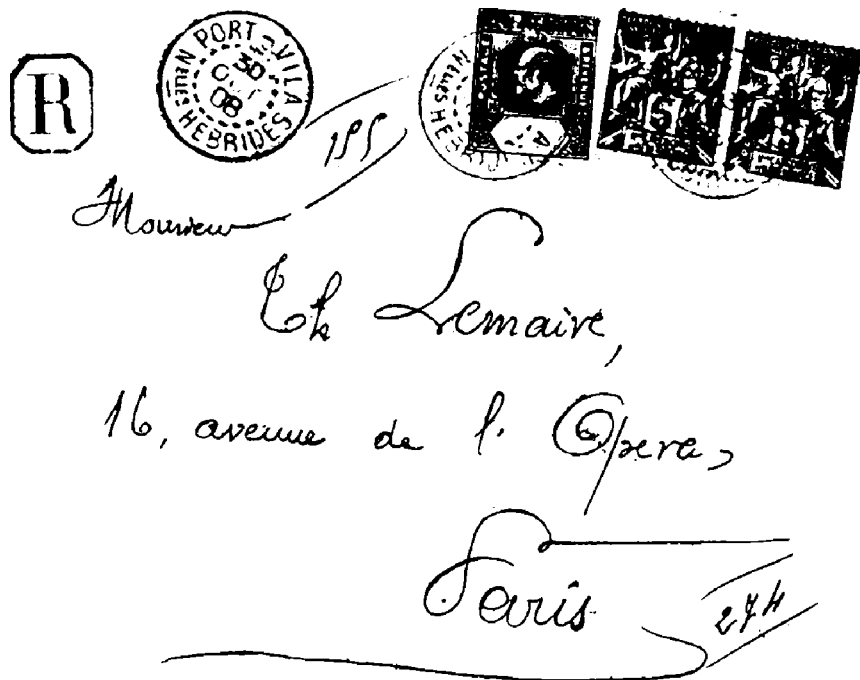 R
PORT-VILA
30
08
Nlles HEBRIDES
155
Monsieur
Th Lemaire,
16, avenue de l'Opera,
Paris
274
5
5